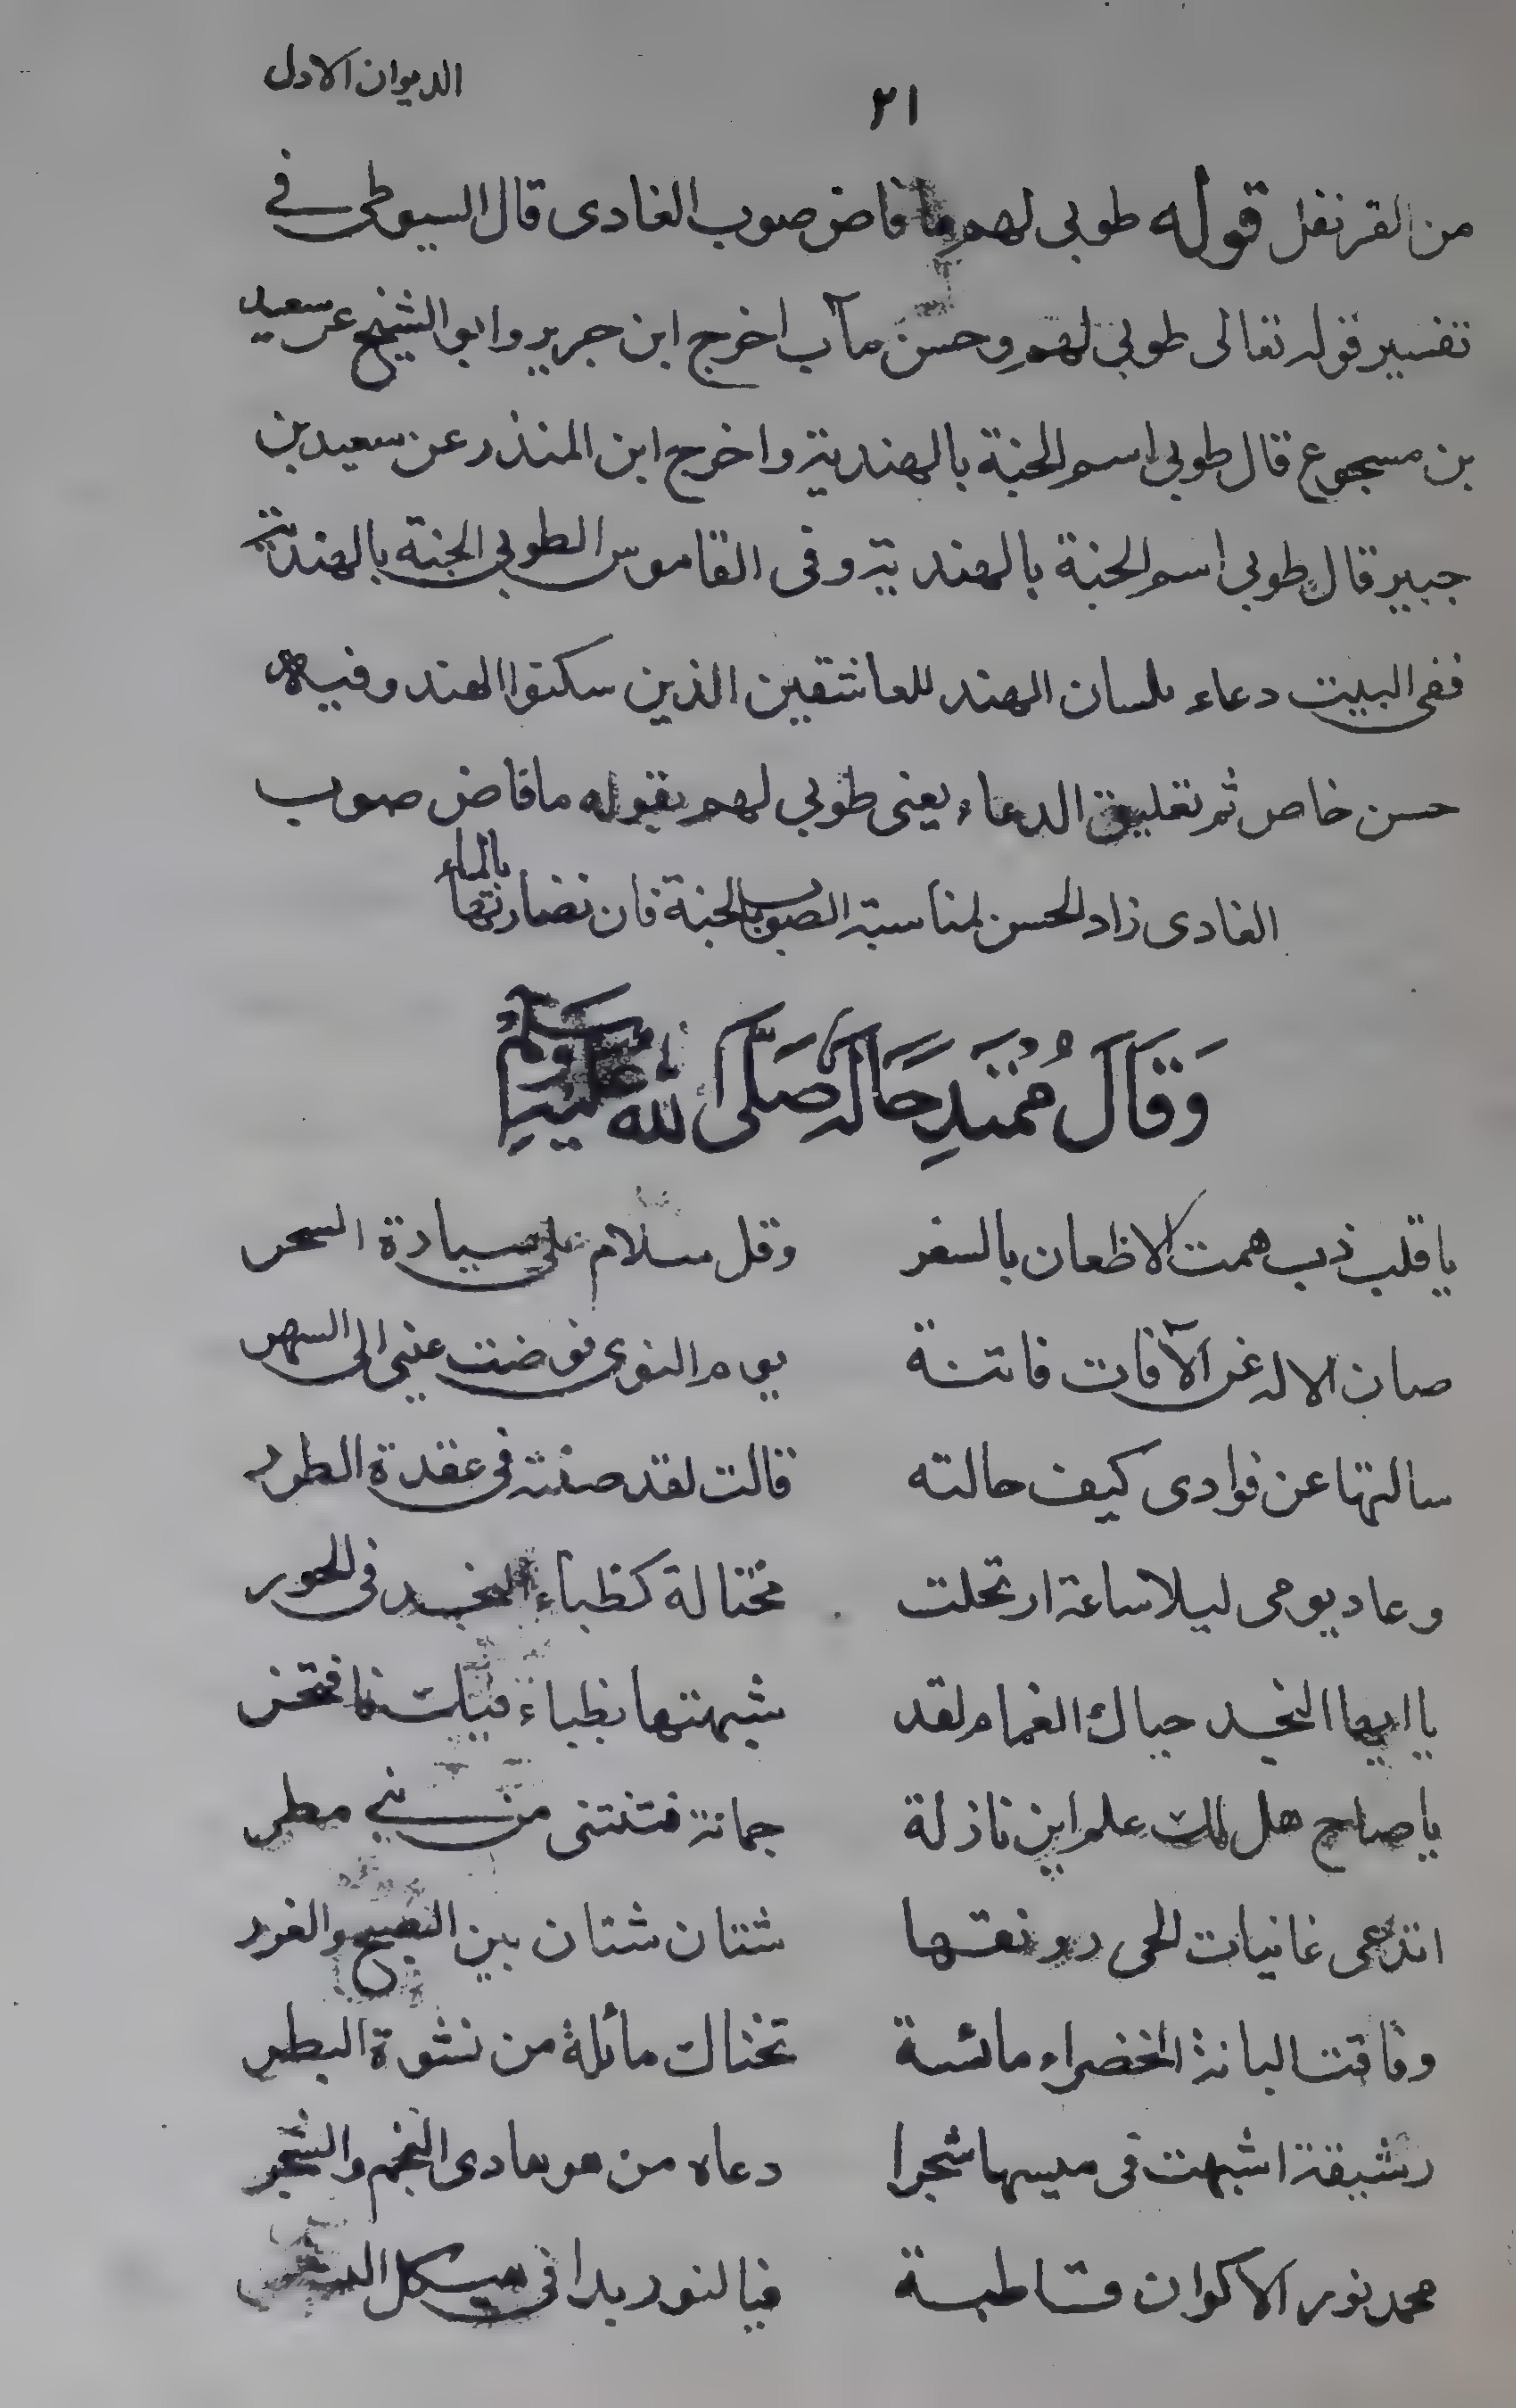 الديوان الاول
٢١
من القرنفل قوله طوبى لهم ما فاض صوب الغادى قال السيوطى فى
تفسير قوله تعالى طوبى لهم وحسن مآب اخرج ابن جرير وابو الشيخ عن سعيد
بن مسجوع قال طوبى اسم الجنة بالهندية واخرج ابن المنذر عن سعيد بن
جبير قال طوبى اسم الجنة بالهندية وفى القاموس الطوبى الجنة بالهندية
ففى البيت دعاء بلسان الهند للعاشقين الذين سكنوا الهند وفيه
حسن خاص ثم تعليق الدعاء يعنى طوبى لهم بقوله ما فاض صوب
الغادى زاد الحسن لمناسبة الصوب بالجنة فان نضارتها بالماء
وَقَالَ مُمْتَدِحًا لَهُ صَلَّى اللهُ عَلَيْهِ وَسَلَّمَ
يا قلب ذب همت الاظعان بالسفر وقل سلام على سيادة السحر
صان الاله عن الآفات فاتنة يوم النوى فوضت عينى الى السهر
سالتها عن فوادى كيف حالته قالت لقد صنته فى عقدة الطرر
وعاد يومى ليلا ساعة ارتحلت مختالة كظباء النجد فى الحور
يا ايها النجد حياك الغمام لقد شبهتها بظباء فيك فافتخر
يا صاح هل لك علم اين نازلة جمانة فتنتنى من بنى مطر
اتدعى غانيات الحى رونقها شتان شتان بين الصبح والغرر
وفاقت البانة الخضراء مائسة تختال مائلة من نشوة البطر
رشيقة اشبهت فى ميسها شجرا دعاه من هو هادى النجم والشجر
محمد نور الاكوان قاطبة فيا لنور بدا فى هيكل البشر